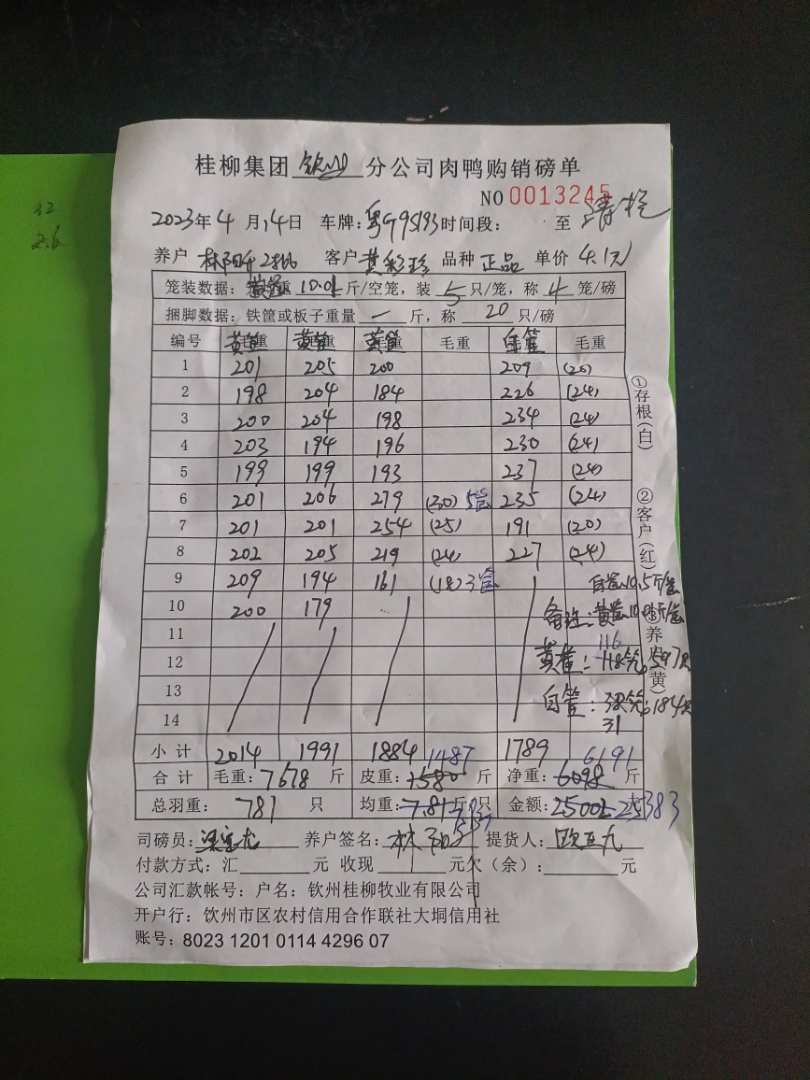 32
2.6
桂柳集团 钦州 分公司肉鸭购销磅单
NO 0013245
2023年4月14日 车牌: 粤G95193 时间段: 至
养户 客户 黄彩珍 品种 正品 单价 4.1元
笼装数据: 重 10.01 斤/空笼,装 5 只/笼,称 4 笼/磅
捆脚数据:铁筐或板子重量 一 斤,称 20 只/磅
编号 黄筐 黄筐 黄筐 毛重 白筐 毛重
1 201 205 200 209 (20)
2 198 204 184 226 (24)
3 200 204 198 234 (24)
4 203 194 196 230 (24)
5 199 199 193 237 (24)
6 201 206 279 (30) 5筐 235 (24)
7 201 201 254 (25) 191 (20)
8 202 205 219 (24) 227 (24)
9 209 194 161 (18) 3筐 白筐10.5斤/筐
10 200 179 备注:黄筐
11 116
12 黄筐: 118 597只
13 白筐: 184只
14 31
小计 2014 1991 1884 1487 1789 6191
合计 毛重:7678 斤 皮重:1580 斤 净重:6098 斤
总羽重: 781 只 均重:7.81 斤/只 金额:25002 25383
司磅员: 养户签名: 提货人:
付款方式:汇 元 收现 元欠(余): 元
公司汇款帐号:户名:钦州桂柳牧业有限公司
开户行:钦州市区农村信用合作联社大垌信用社
账号:8023 1201 0114 4296 07
①存根(白) ②客户(红) ③养户(黄)